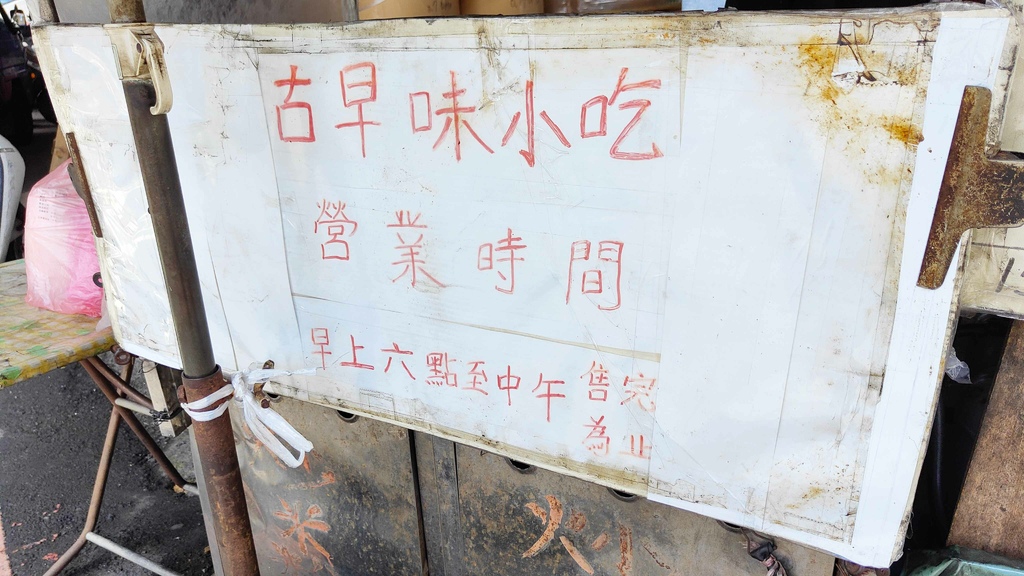 古早味小吃
營業時間
早上六點至中午 售完
為止